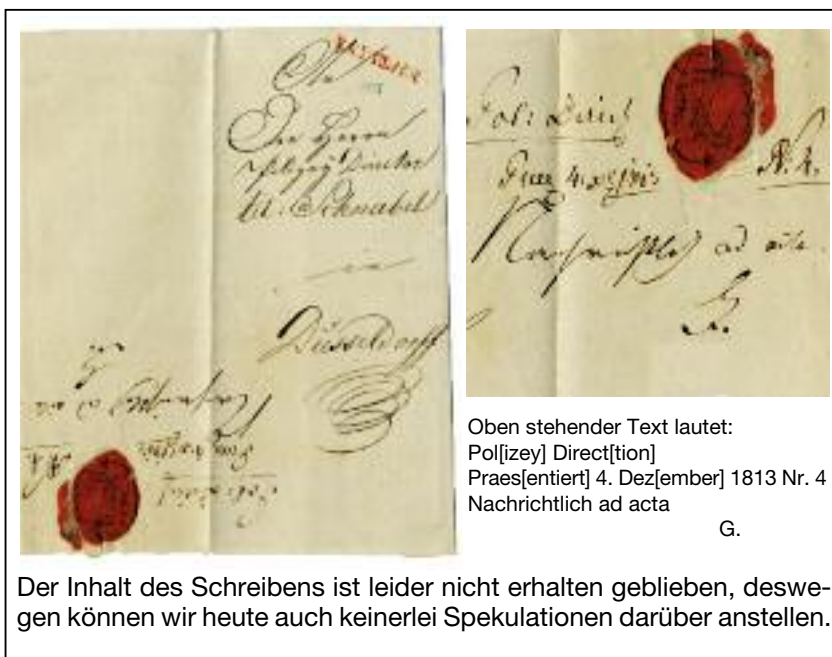 An
Den Herrn
Polizey Director
Schnabel
in
Düsseldorff
Pol: Direct
Praes 4. X 1813 N. 4.
Nachrichtlich ad acta.
G.
Oben stehender Text lautet:
Pol[izey] Direct[tion]
Praes[entiert] 4. Dez[ember] 1813 Nr. 4
Nachrichtlich ad acta
G.
Der Inhalt des Schreibens ist leider nicht erhalten geblieben, deswe-
gen können wir heute auch keinerlei Spekulationen darüber anstellen.